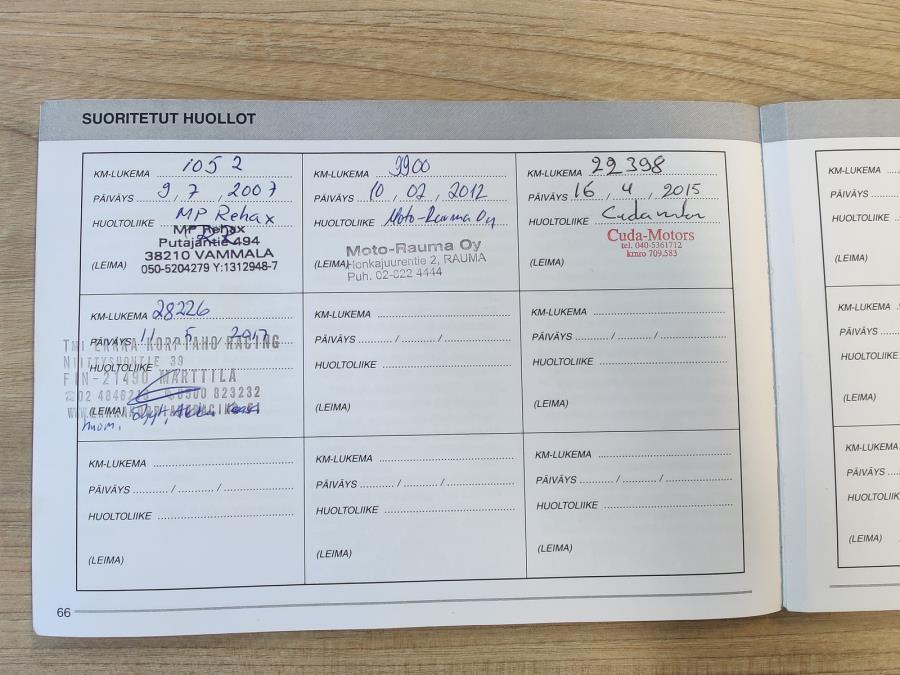 SUORITETUT HUOLLOT
KM-LUKEMA 1052
PÄIVÄYS 9,7,2007
HUOLTOLIIKE MP Rehax
MP Rehax
Putajantie 494
38210 VAMMALA
(LEIMA) 050-5204279 Y:1312948-7
KM-LUKEMA 9900
PÄIVÄYS 10,02,2012
HUOLTOLIIKE Moto-Rauma Oy
Moto-Rauma Oy
(LEIMA) Honkajuurentie 2, RAUMA
Puh. 02-822 4444
KM-LUKEMA 22398
PÄIVÄYS 16,4,2015
HUOLTOLIIKE
Cuda-Motors
tel. 040-5361712
kmro 709.583
(LEIMA)
KM-LUKEMA 28226
PÄIVÄYS 11 5 2017
KORPIAHO RACING
39
HUOLTOLIIKE
FIN-21490 MARTTILA
0500 823232
(LEIMA)
huom.
KM-LUKEMA
PÄIVÄYS / /
HUOLTOLIIKE
(LEIMA)
KM-LUKEMA
PÄIVÄYS / /
HUOLTOLIIKE
(LEIMA)
KM-LUKEMA
PÄIVÄYS / /
HUOLTOLIIKE
(LEIMA)
KM-LUKEMA
PÄIVÄYS / /
HUOLTOLIIKE
(LEIMA)
KM-LUKEMA
PÄIVÄYS / /
HUOLTOLIIKE
(LEIMA)
66
KM-LUKEMA
PÄIVÄYS
HUOLTOLIIKE
(LEIMA)
KM-LUKEMA
PÄIVÄYS
HUOLTOLIIKE
(LEIMA)
KM-LUKEMA
PÄIVÄYS
HUOLTOLIIKE
(LEIMA)